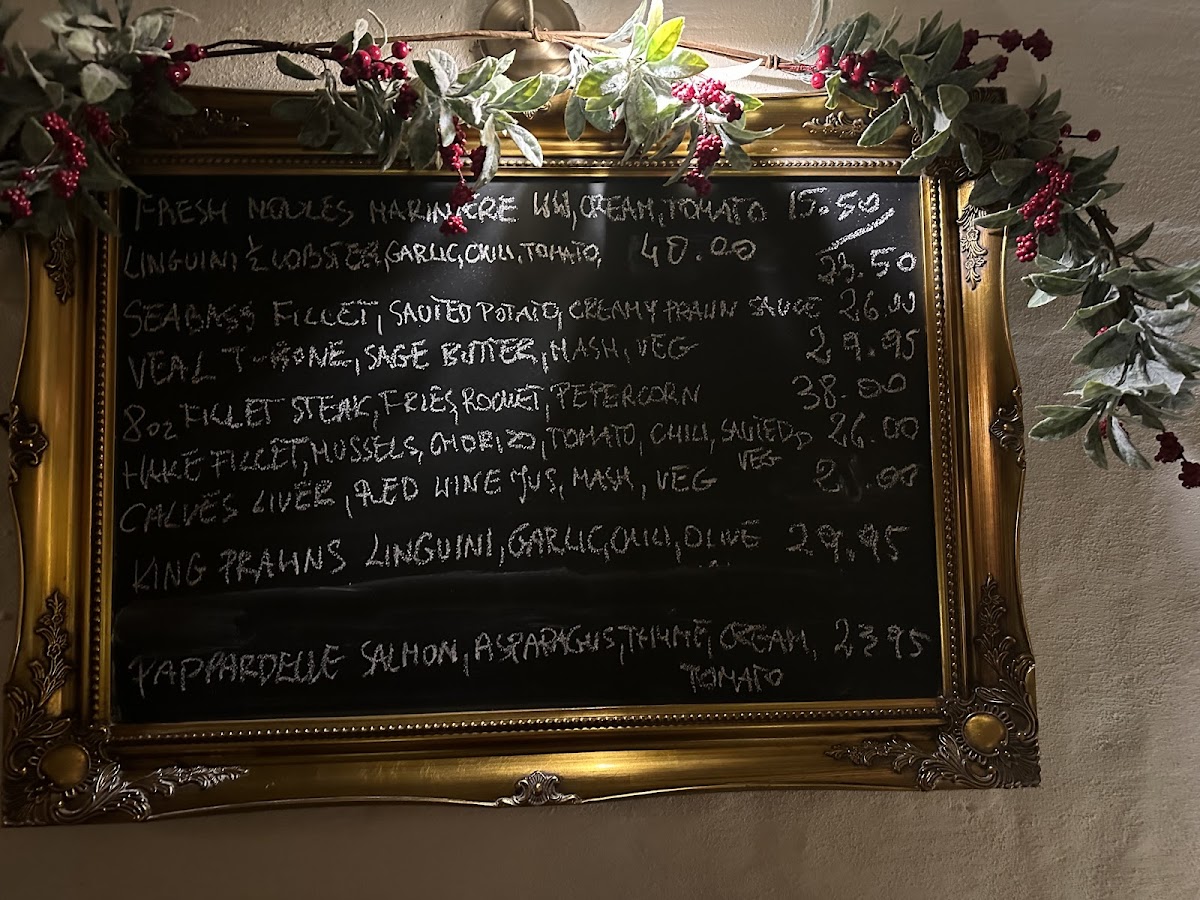 FRESH MOULES MARINIERE WW, CREAM, TOMATO 15.50
LINGUINI ½ LOBSTER, GARLIC, CHILI, TOMATO, 40.00 23.50
SEABASS FILLET, SAUTED POTATO, CREAMY PRAWN SAUCE 26.00
VEAL T-BONE, SAGE BUTTER, MASH, VEG 29.95
8oz FILLET STEAK, FRIES, ROCKET, PEPERCORN 38.00
HAKE FILLET, MUSSELS, CHORIZO, TOMATO, CHILI, SAUTED 26.00
VEG
CALVES LIVER, RED WINE JUS, MASH, VEG .00
KING PRAWNS LINGUINI, GARLIC, CHILI, OLIVE 29.95
PAPPARDELLE SALMON, ASPARAGUS, CREAM, 23.95
TOMATO